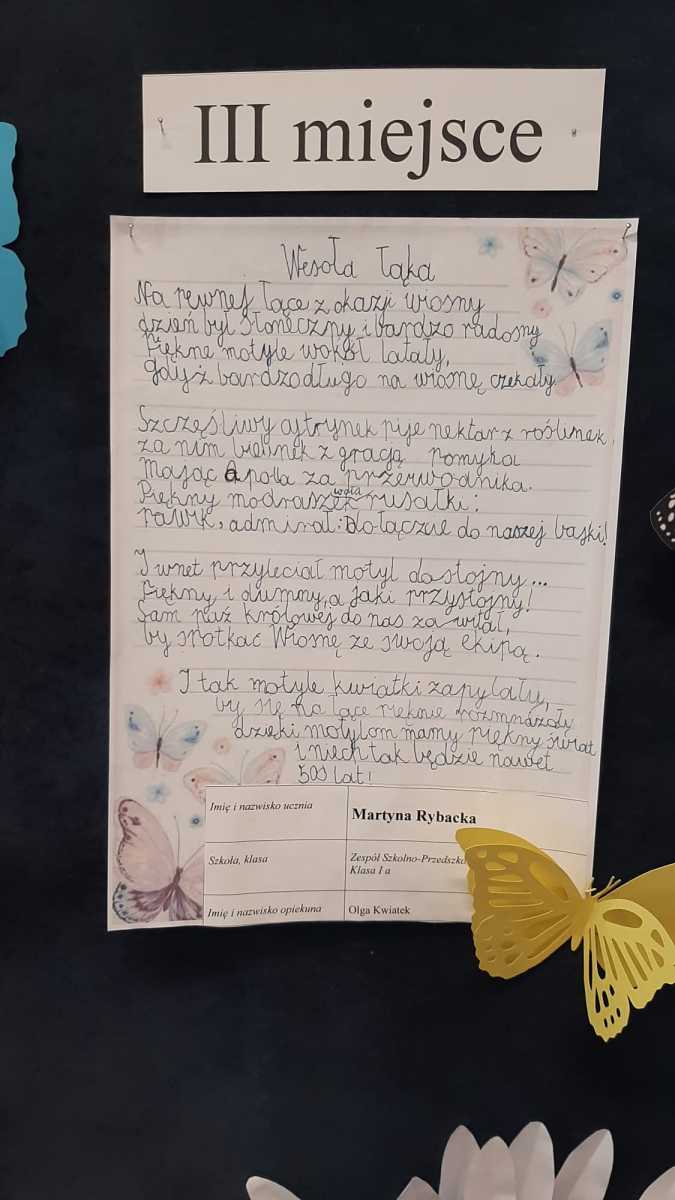 III miejsce
Wesoła łąka
Na pewnej łące z okazji wiosny
dzień był słoneczny i bardzo radosny
Piękne motyle wokół latały,
gdyż bardzo długo na wiosnę czekały
Szczęśliwy cytrynek pije nektar z roślinek,
za nim bielinek z gracją pomyka
mając Apolla za przewodnika.
Piękny modraszek woła rusałki:
pawik, admirał: Dołączcie do naszej bajki!
I wnet przyleciał motyl dostojny...
Piękny i dumny, a jaki przystojny!
Sam paź królowej do nas zawitał,
by spotkać Wiosnę ze swoją ekipą.
I tak motyle kwiatki zapylały,
by się na łące pięknie rozmnażały
dzięki motylom mamy piękny świat
i niech tak będzie nawet
500 lat!
Imię i nazwisko ucznia
Martyna Rybacka
Szkoła, klasa
Zespół Szkolno-Przedszko
Klasa I a
Imię i nazwisko opiekuna
Olga Kwiatek